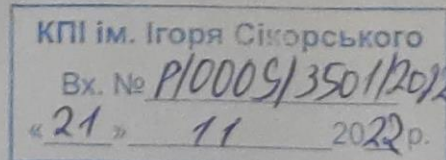 КПІ ім. Ігоря Сікорського
Вх. № Р/0005/3501/2022
«21» 11 2022 р.